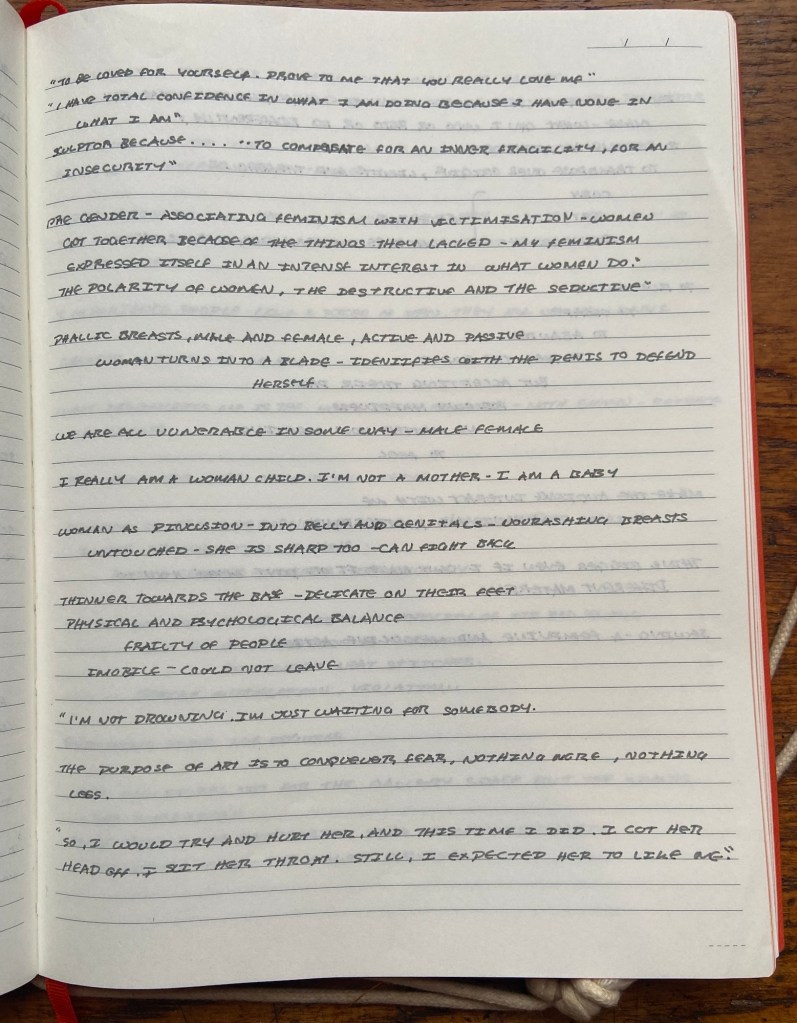 "TO BE LOVED FOR YOURSELF. PROVE TO ME THAT YOU REALLY LOVE ME"
"I HAVE TOTAL CONFIDENCE IN WHAT I AM DOING BECAUSE I HAVE NONE IN
WHAT I AM"
SCULPTOR BECAUSE.... "TO COMPESATE FOR AN INNER FRAGILITY, FOR AN
INSECURITY"
PRE GENDER - ASSOCIATING FEMINISM WITH VICTIMISATION - WOMEN
GOT TOGETHER BECAUSE OF THE THINGS THEY LACKED - MY FEMINISM
EXPRESSED ITSELF IN AN INTENSE INTEREST IN WHAT WOMEN DO."
THE POLARITY OF WOMEN, THE DESTRUCTIVE AND THE SEDUCTIVE"
PHALLIC BREASTS, MALE AND FEMALE, ACTIVE AND PASSIVE
WOMAN TURNS INTO A BLADE - IDENTIFIES WITH THE PENIS TO DEFEND
HERSELF
WE ARE ALL VUNERABLE IN SOME WAY - MALE FEMALE
I REALLY AM A WOMAN CHILD. I'M NOT A MOTHER - I AM A BABY
WOMAN AS PINCUSION - INTO BELLY AND GENITALS - NOURASHING BREASTS
UNTOUCHED - SHE IS SHARP TOO - CAN FIGHT BACK
THINNER TOWARDS THE BASE - DELICATE ON THEIR FEET
PHYSICAL AND PSYCHOLOGICAL BALANCE
FRAILTY OF PEOPLE
IMOBILE - COULD NOT LEAVE
"I'M NOT DROWNING, I'M JUST WAITING FOR SOMEBODY.
THE PURPOSE OF ART IS TO CONQUEUER FEAR, NOTHING MORE, NOTHING
LESS.
"SO, I WOULD TRY AND HURT HER, AND THIS TIME I DID. I CUT HER
HEAD OFF, I SLIT HER THROAT. STILL, I EXPECTED HER TO LIKE ME."